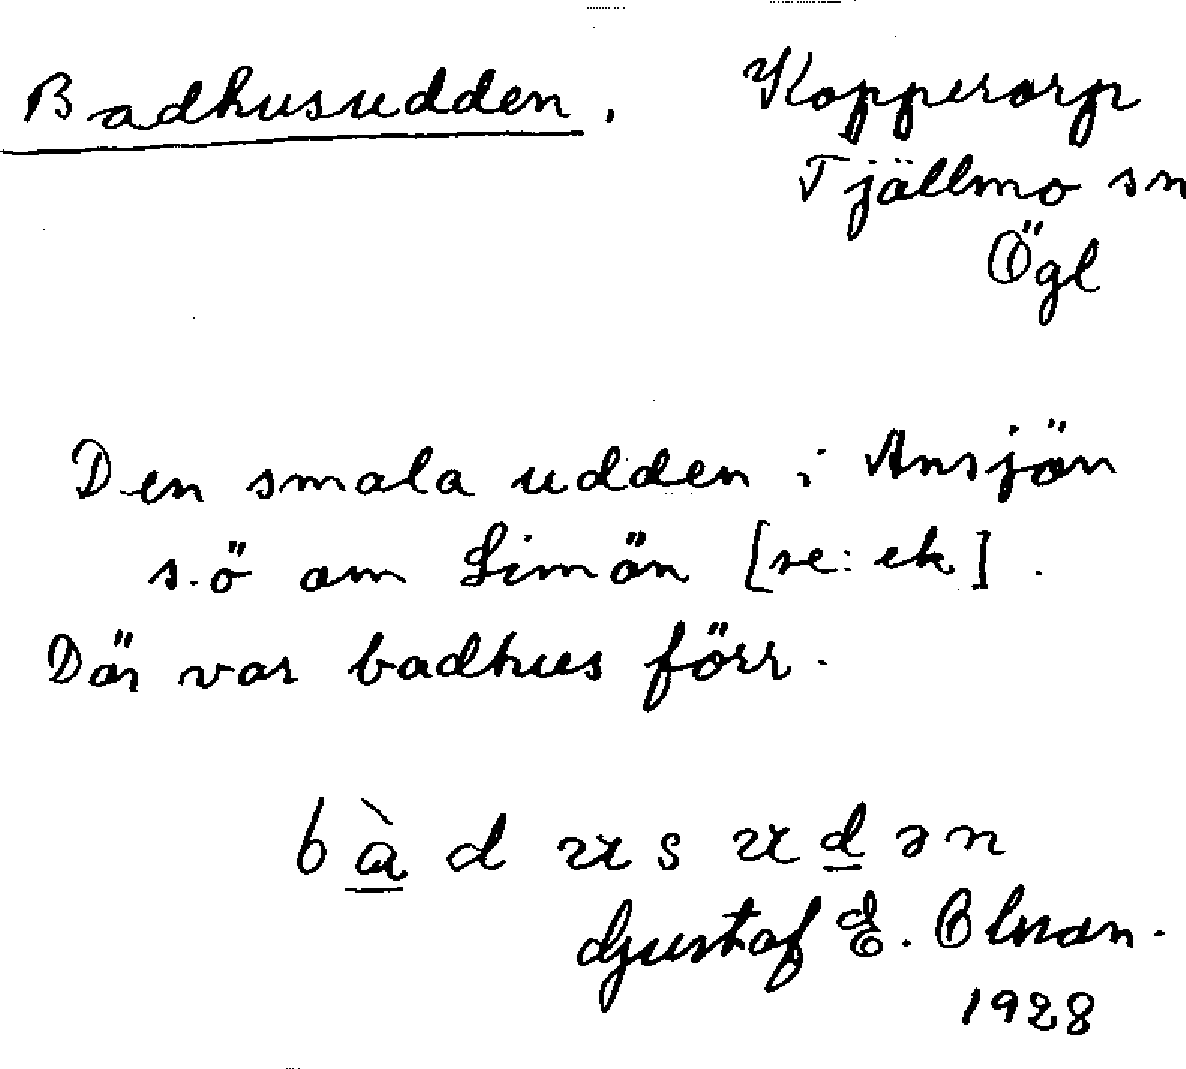 Badhusudden. Kopperorp
Tjällmo sn
Ögl
Den smala udden i Ansjön
s.ö om Limön [se: ek].
Där var badhus förr.
bàdusudən
Gustaf E. Olson.
1928